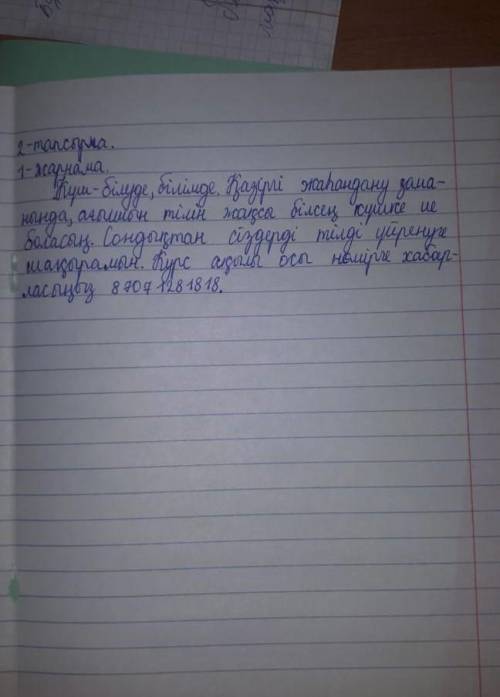 2-тапсырма.
1-жарнама.
Күш-білуде, білімде. Қазіргі жаһандану зама-
нында, ағылшын тілін жақсы білсең күшке ие
боласың. Сондықтан сіздерді тілді үйренуге
шақырамын. Курс ақылы осы нөмірге хабар-
ласыңыз 87071281818.